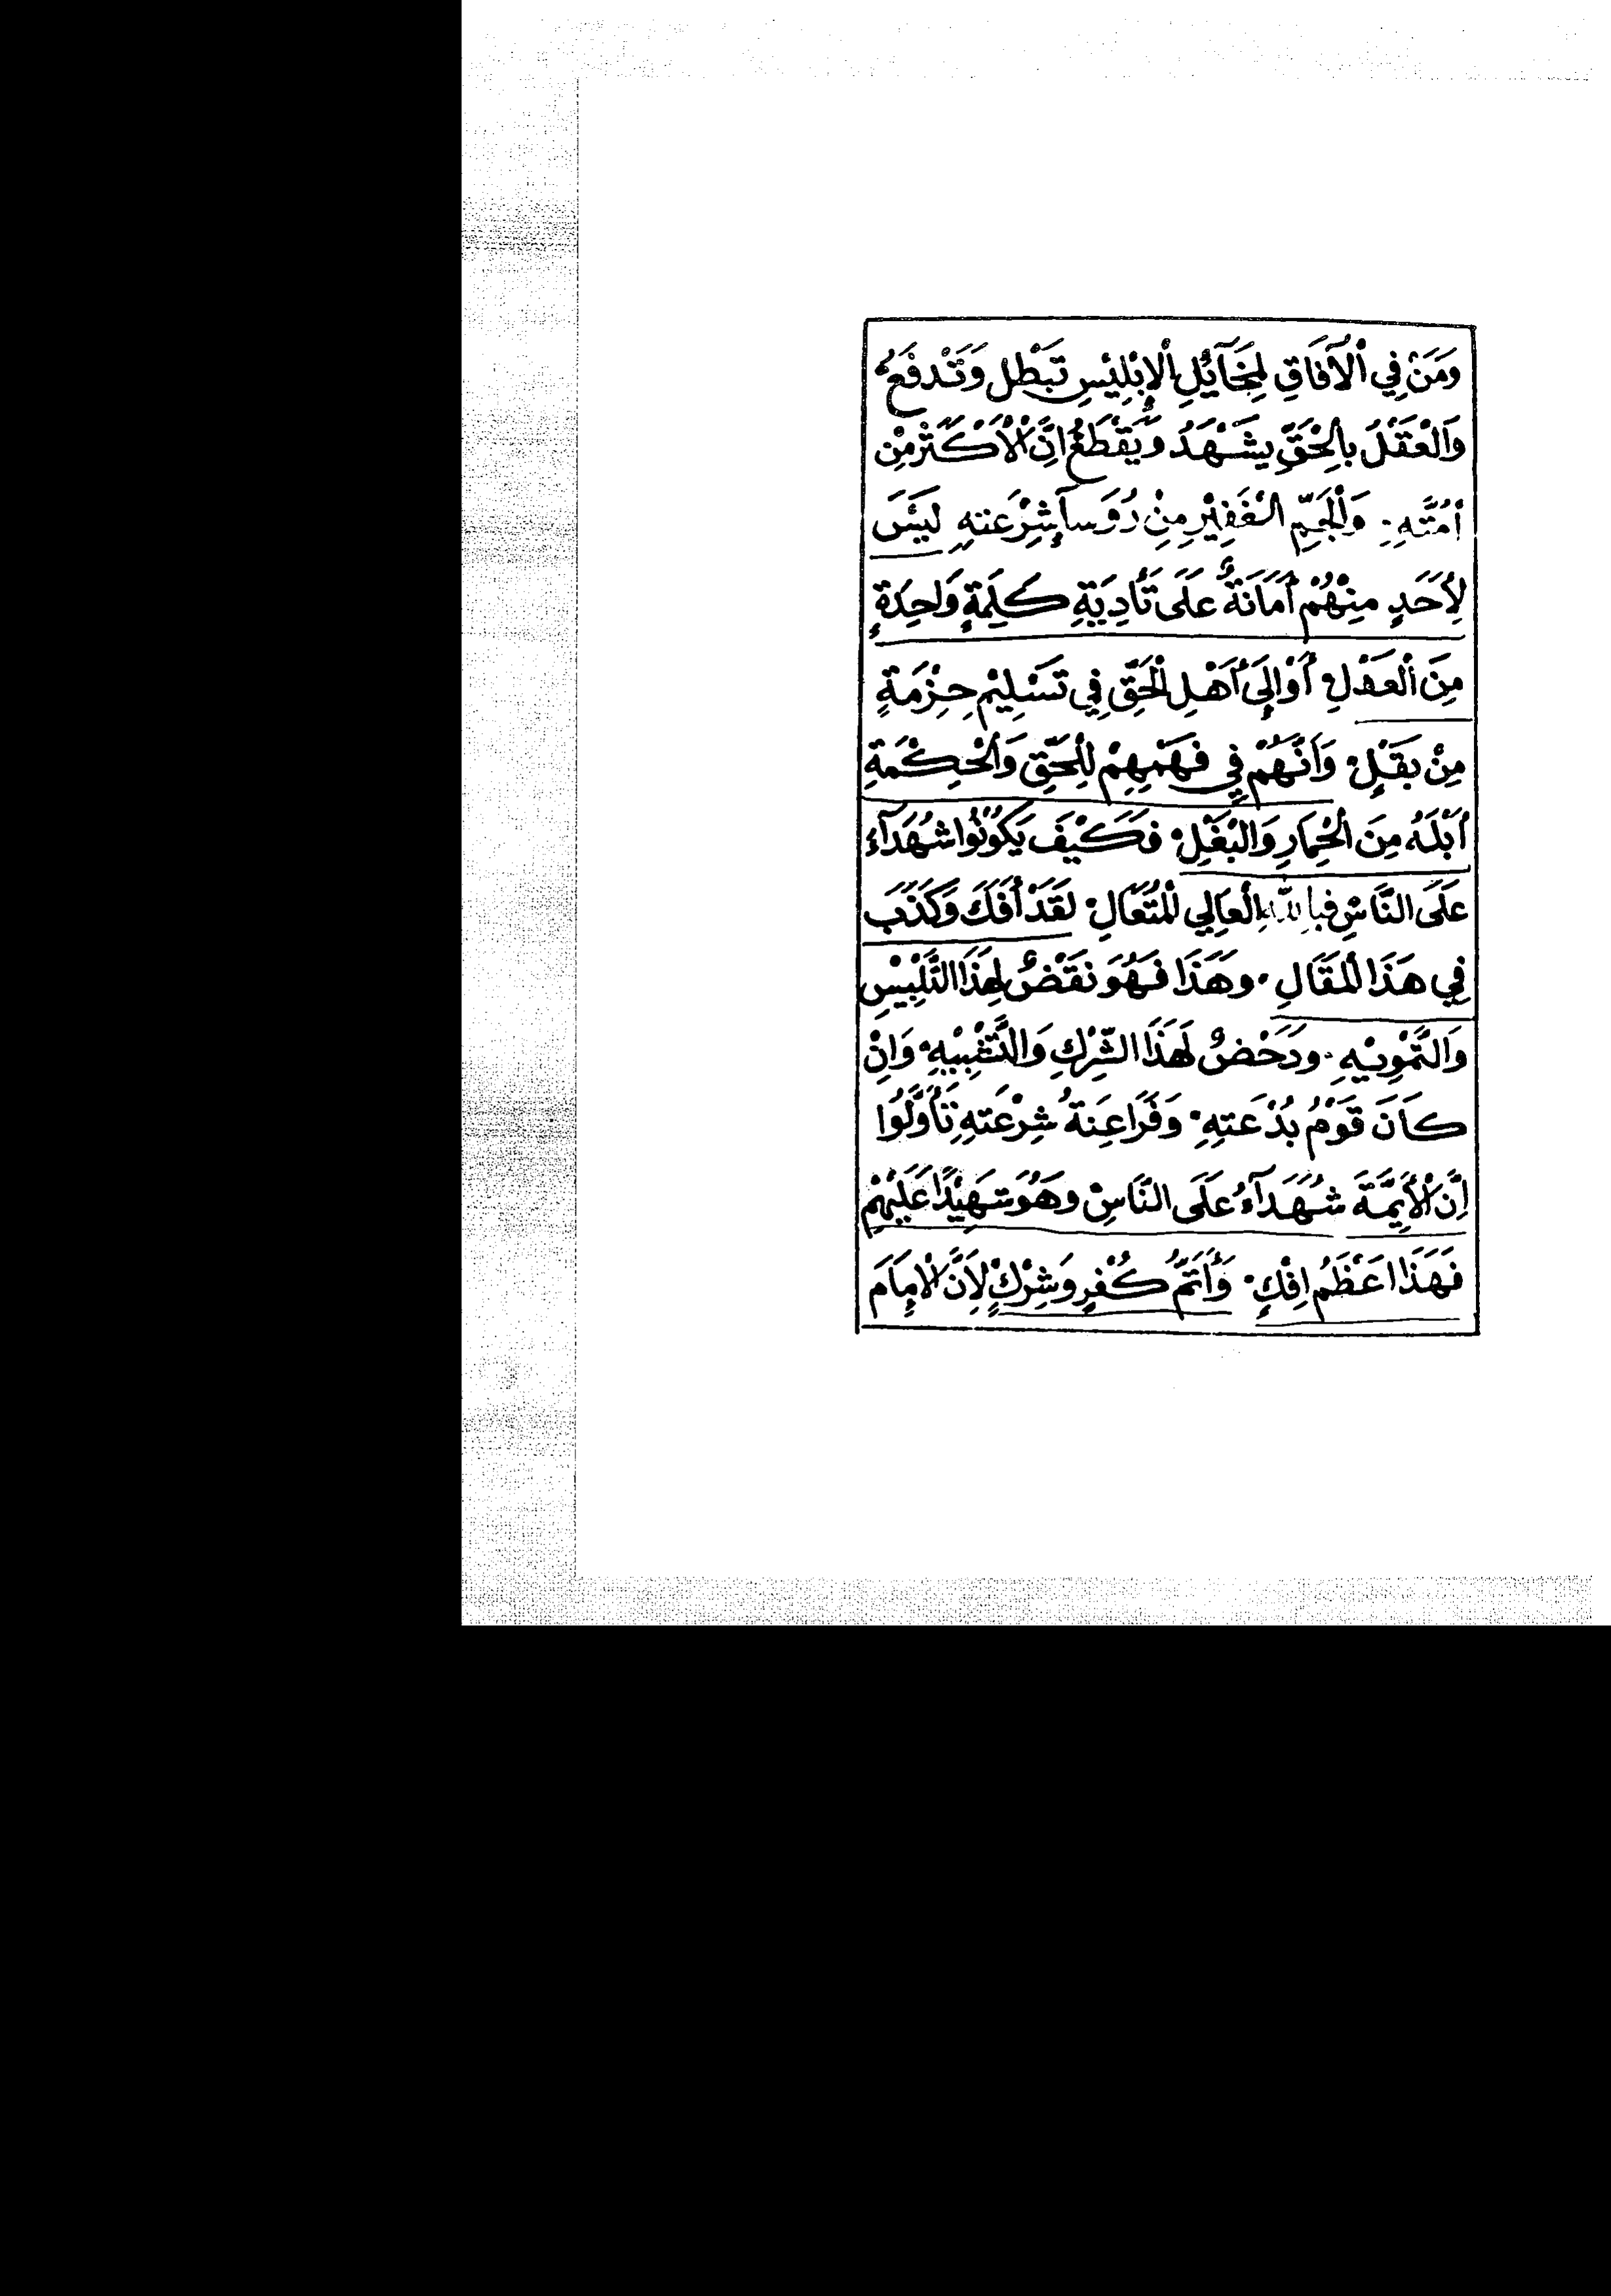 وَمَنْ فِي ٱلْآفَاقِ لِمَخَآئِلِ ٱلْإِبْلِيْسِ تَبْطُل وَتَدْفَعُ
وَالْعَقْلُ بِالْحَقِّ يَشْهَدُ وَيَقْطَعُ اِنَّ الْأَكْثَرَ مِنْ
أُمَّتِهِ. وَالْجَمِّ الْغَفِيْرِ مِنْ رُوَسآءِ شِرْعَتهِ لَيْسَ
لِأَحَدٍ مِنْهُمْ أَمَانَةٌ عَلَى تَأْدِيَةِ كَلِمَةٍ وَاحِدَةٍ
مِنَ ٱلْعَدْلِ أَوْ إِلَى أَهْلِ الْحَقِّ فِي تَسْلِيْمِ حِزْمَةٍ
مِنْ بَقْلٍ وَأَنَّهُمْ فِي فَهْمِهِمْ لِلْحَقِّ وَالْحِكْمَةِ
أَبْلَهُ مِنَ الْحِمَارِ وَالْبَغْلِ فَكَيْفَ يَكُوْنُوا شُهَدَآءَ
عَلَى النَّاسِ فَبِاللّٰهِ الْعَالِي الْمُتَعَالِ لَقَدْ أَفَكَ وَكَذَبَ
فِي هَذَا الْمَقَالِ. وهَذَا فَهُوَ نَقْضٌ لِهَذَا التَّلْبِيْسِ
وَالتَّمْوِيْهِ. ودَحْضٌ لَهَذَا الشِّرْكِ وَالتَّشْبِيْهِ. وَاِنْ
كَانَ قَوْمُ بُدْعَتِهِ. وَفَرَاعِنَةُ شِرْعَتِهِ تَأَوَّلُوْا
اِنَّ الْأَيِمَّةَ شُهَدَآءُ عَلَى النَّاسِ وهُوَ شَهِيْدًا عَلَيْهِمْ
فَهَذَا اعْظَمُ اِفْكٍ. وَأَتَمُّ كُفْرٍ وَشِرْكٍ لِأَنَّ الْاِمَامَ